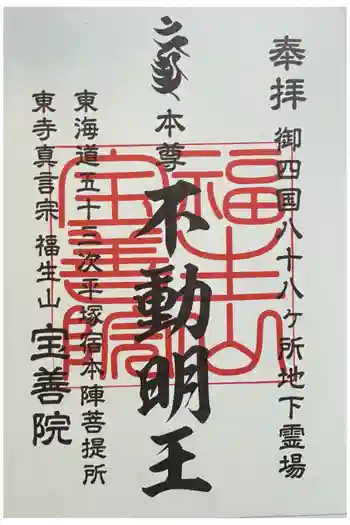 奉拝
御四国八十八ヶ所地下霊場
本尊
不動明王
東海道五十三次平塚宿本陣菩提所
東寺真言宗 福生山 宝善院
福生山
宝善院